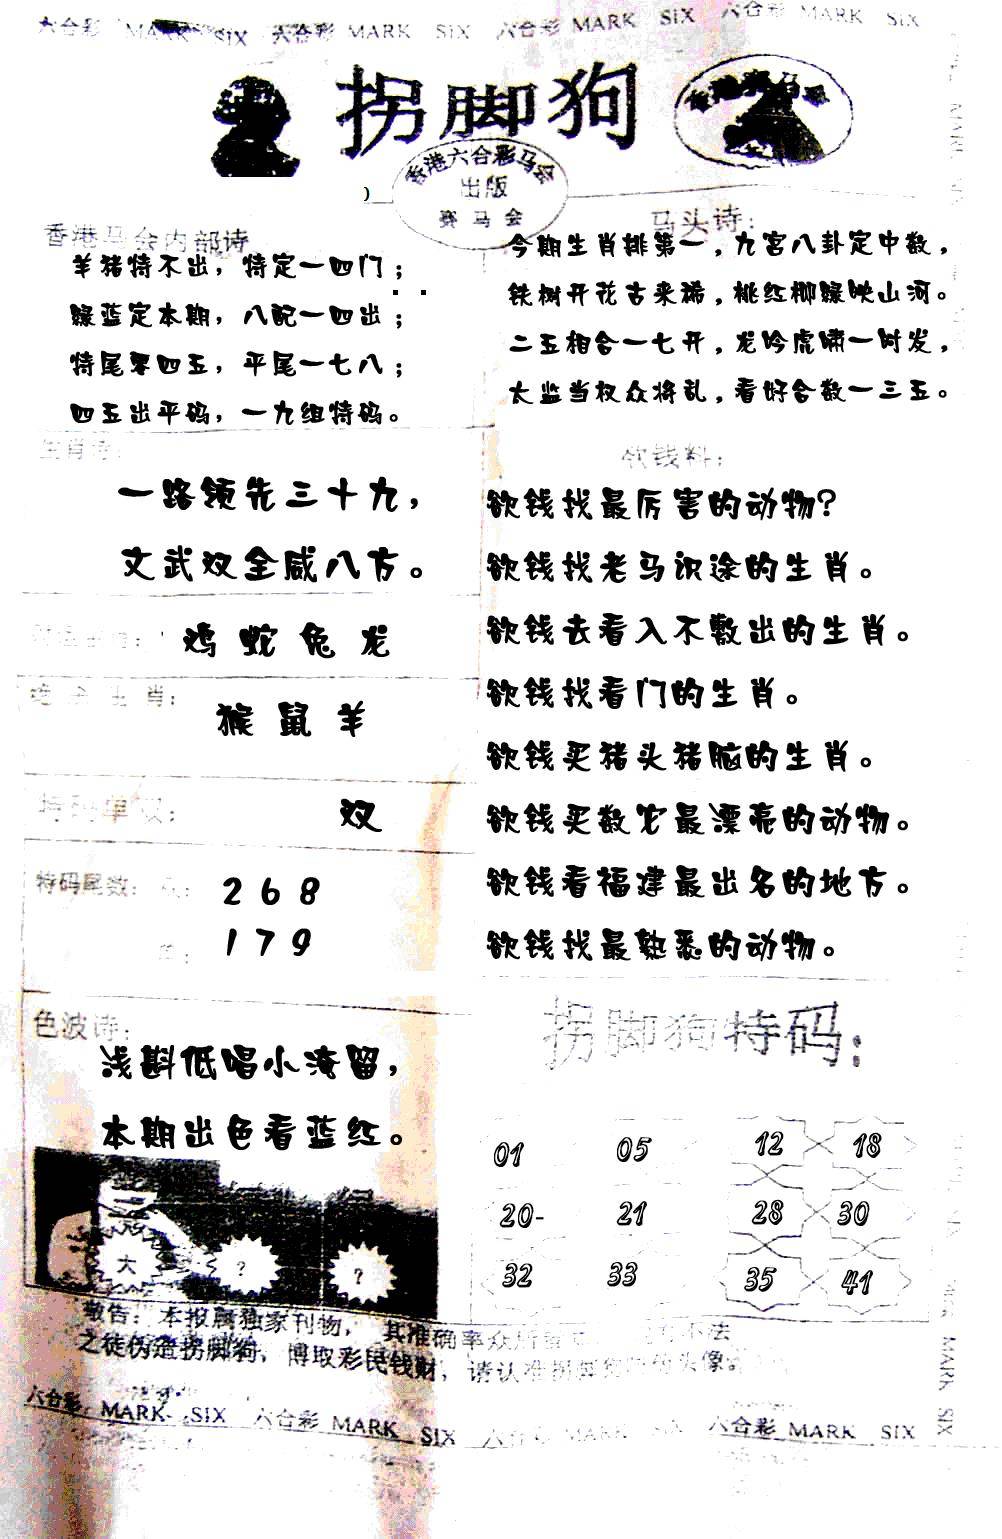 六合彩 MARK SIX 六合彩 MARK SIX 六合彩 MARK SIX 六合彩 MARK SIX
拐脚狗
香港六合彩马会
出版
赛马会
香港马会内部诗
羊猪特不出，特定一四门；
绿蓝定本期，八配一四出；
特尾零四五，平尾一七八；
四五出平码，一九组特码。
马头诗：
今期生肖排第一，九宫八卦定中数，
铁树开花古来稀，桃红柳绿映山河。
二五相合一七开，龙吟虎啸一时发，
太监当权众将乱，看好合数一三五。
生肖诗：
一路领先三十九，
文武双全威八方。
鸡 蛇 兔 龙
生肖：
猴 鼠 羊
特码单双：
双
特码尾数：
2 6 8
1 7 9
色波诗：
浅斟低唱小淹留，
本期出色看蓝红。
大 ? ?
欲钱料：
欲钱找最厉害的动物？
欲钱找老马识途的生肖。
欲钱去看入不敷出的生肖。
欲钱找看门的生肖。
欲钱买猪头猪脑的生肖。
欲钱买数它最漂亮的动物。
欲钱看福建最出名的地方。
欲钱找最熟悉的动物。
拐脚狗特码：
01 05 12 18
20- 21 28 30
32 33 35 41
敬告：本报属独家刊物，其准确率众所 不法
之徒伪造拐脚狗，博取彩民钱财，请认准拐脚 头像。
六合彩 MARK SIX 六合彩 MARK SIX 六合彩 MARK SIX 六合彩 MARK SIX
MARK SIX